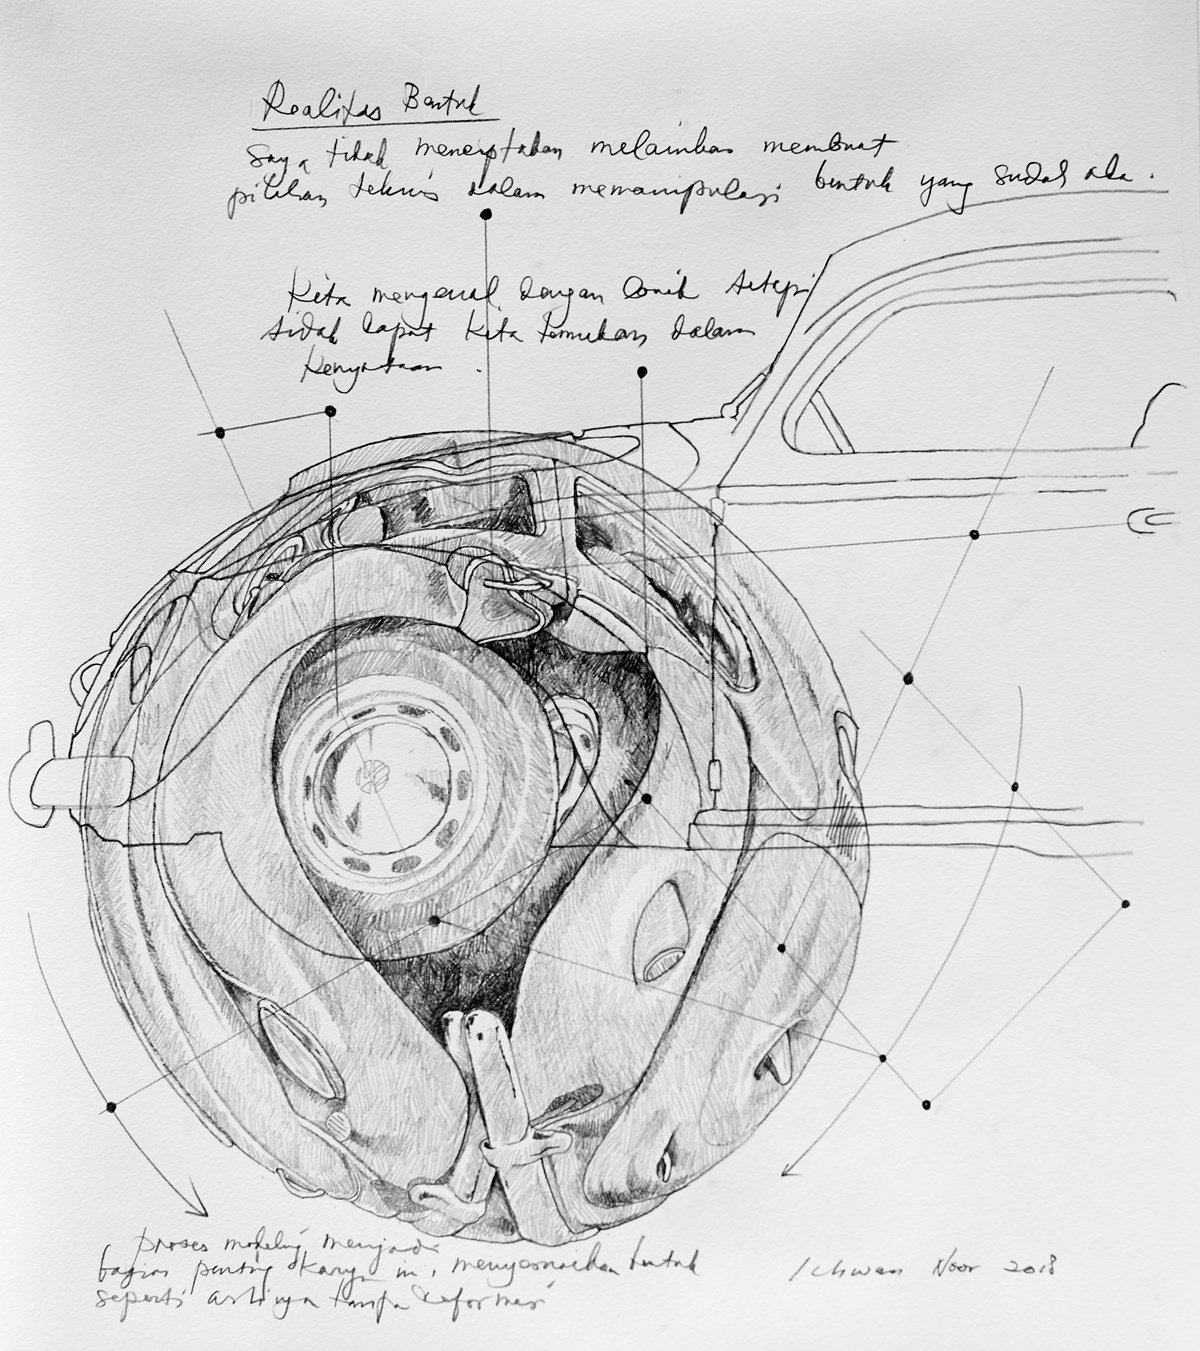 Realitas Bentuk
Saya tidak menciptakan melainkan membuat
pilihan teknis dalam memanipulasi bentuk yang sudah ada.
Kita mengenal dengan baik tetapi
tidak dapat kita temukan dalam
Kenyataan.
proses modeling menjadi
bagian penting karya ini, menyesuaikan bentuk
seperti aslinya tanpa deformasi
Ichwan Noor 2018